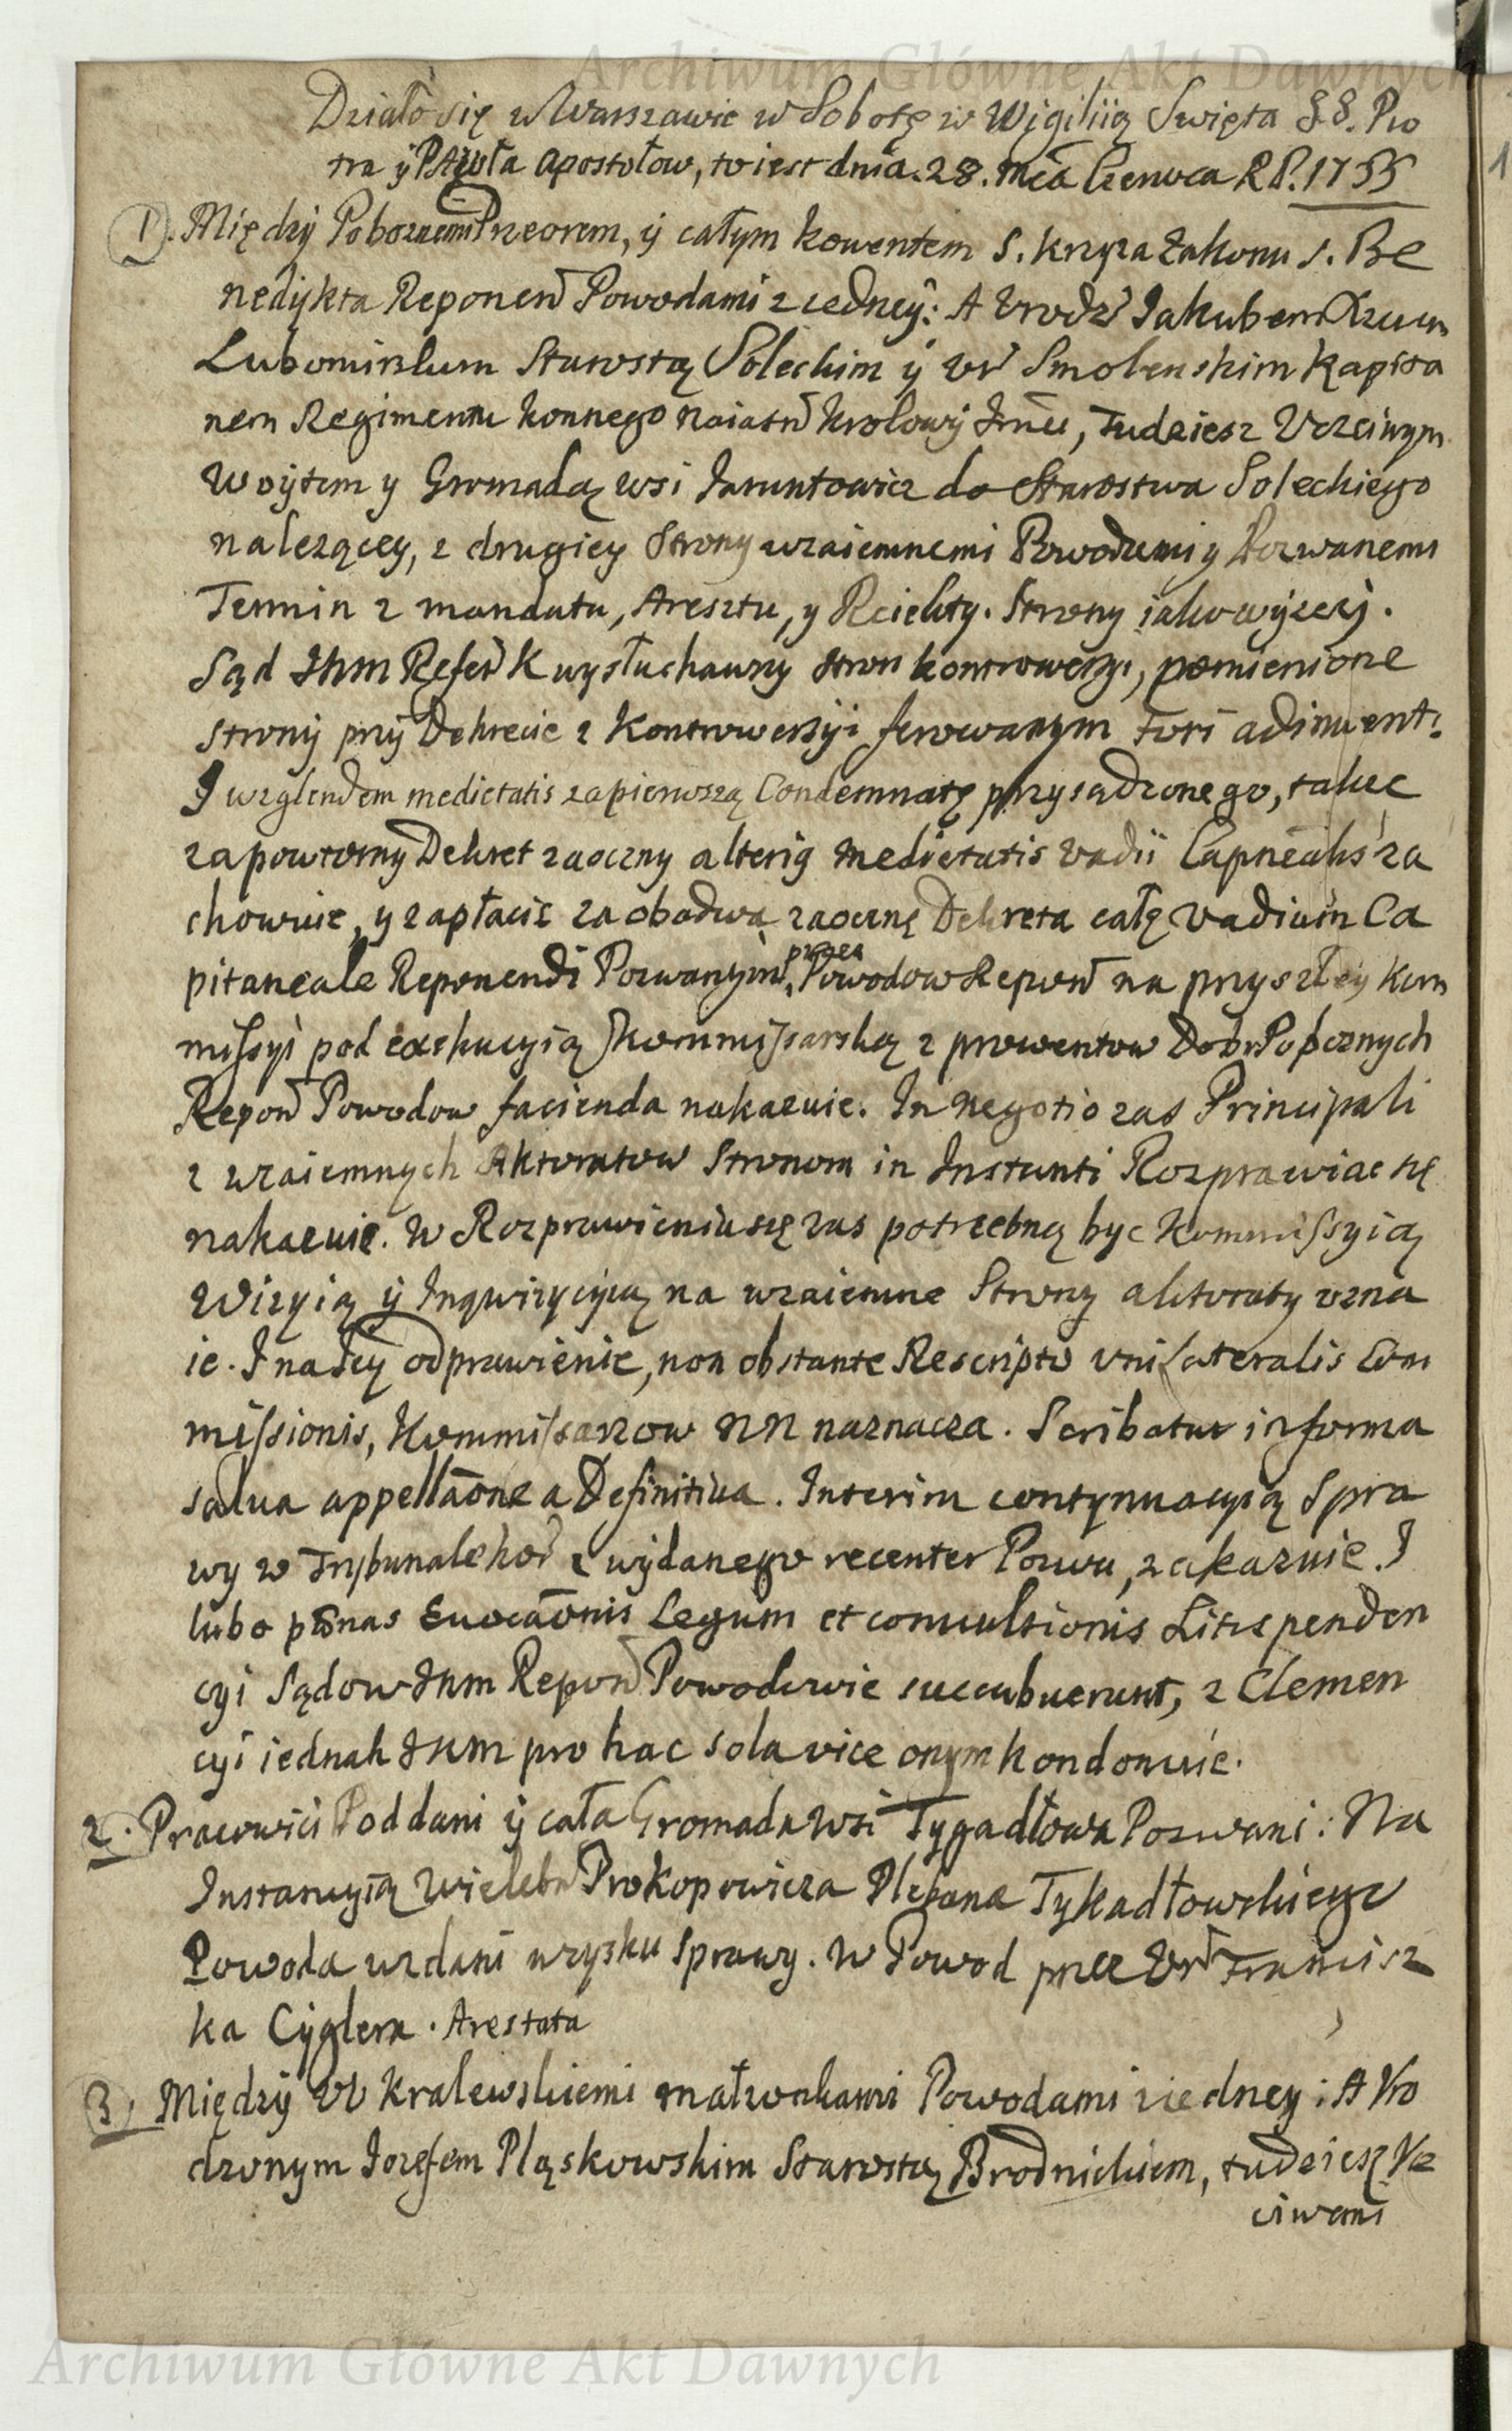 Działo się w Warszawie w Sobotę w Wigiliią Swięta SS. Pio
tra ÿ Pawła Apostołow, to iest dnia. 28. mca Czerwca R.P. 1755
1. Między Poboznemi Przeorem, ÿ całym konwentem S. krzyza Zakonu S. Be
nedÿkta Reponen Powodami z iedneÿ: A Vrodz Jakubem Xzcem
Lubomirskim Starostą Soleckim ÿ Vr Smolenskim kapita
nem Regimentu konnego naiasn krolowÿ Jmci, Tudziesz Vczciwym
Woÿtem y Gromadą wsi Jaruntowicz do Starostwa Soleckiego
nalezącey, z drugiey Strony wzaiemnemi Powodami y Pozwanemi
Termin z mandatu, Aresztu, y Reiekty. Strony iako wÿzeÿ.
Sąd JKM Refer K wysłuchawszy stron kontrowersyi, pomienione
stronÿ przÿ Dekrecie z Kontrowersÿi ferowanym fori adinvent:
J wzglendem medietatis za pierwszą Condemnatę przysądzonego, takze
za powtorny Dekret zaoczny alterig medietatis vadii Capnealis za
chowuie, y zapłacic za obadwa zaocznę Dekreta całę vadium Ca
pitaneale Reponendi Pozwanÿm, przez Powodow Repon na przyszłeÿ kom
missÿi pod exekucyią kommissarską z prowentow Dobr Poboznych
Repon Powodow facienda nakazuie. In negotio zas Principali
z wzaiemnych Aktoratow Stronom in Instanti Rozprawiac się
nakazuie. W Rozprawieniu się zas potrzebną byc Kommissyią
Wizyią ÿ Jnqwizycÿią na wzaiemne Strony aktoraty vzna
ie. J na Teÿ odprawienie, non obstante Rescripto vnilateralis Com
missionis, Kommissarzow NN naznacza. Scribatur in forma
salva appellaone a Definitiva. Interim contynuacyią Spra
wy w Trybunale kor z wÿdanego recenter Pozwu, zakazuie. J
lubo pœnas Evocaonis Legum et convulsionis Litispenden
cyi Sądow JKM Repon Powodowie succubuerunt, z Clemen
cyi iednak JKM pro hac sola vice onym kondonuie.
2. Pracowici Poddani ÿ cała Gromada wsi Tygadłowa Pozwani: Na
Instancyią Wielebn Prokopowicza Plebana Tykadłowskiego
Powoda wzdani w zysku sprawy. W Powod przez Vr Francisz
ka Cÿglera. Arestata
3. Międzÿ Vr Kralewskiemi małzonkami Powodami z iedney: A Vro
dzonym Jozefem Pląskowskim Starostą Brodnickiem, tudziesz Vcz
ciwemi